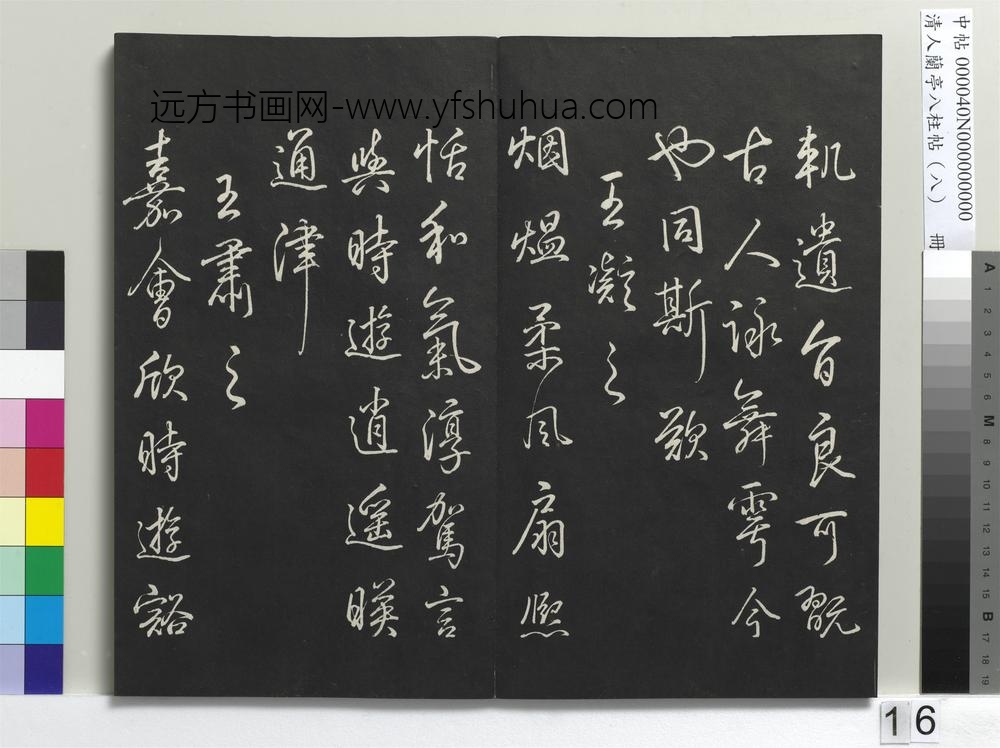 远方书画网-www.yfshuhua.com
軌遺旨良可翫
古人詠舞雩今
也同斯歎
王凝之
烟熅柔風扇熙
恬和氣淳駕言
興時遊逍遙暎
通津
王肅之
嘉會欣時遊豁
中帖 000040N000000000
清人蘭亭八柱帖(八) 冊
A 1 2 3 4 5 6 M 8 9 10 11 12 13 14 15 B 17 18 19
16